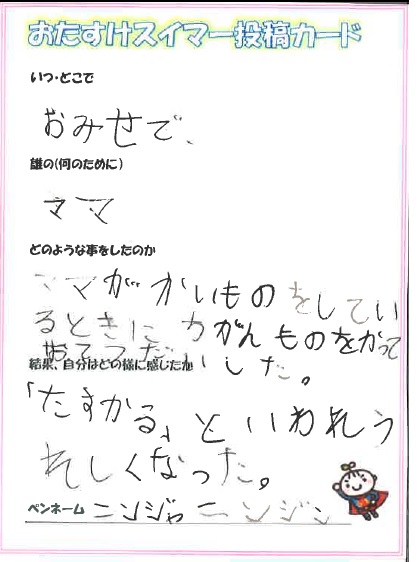 おたすけスイマー投稿カード
いつ・どこで
おみせで、
誰の(何のために)
ママ
どのような事をしたのか
ママがかいものをしてい
るときに かがんものをかって
おてつだいした。
結果、自分はどの様に感じたか
「たすかる」といわれう
れしくなった。
ペンネーム ニンジャニンジン